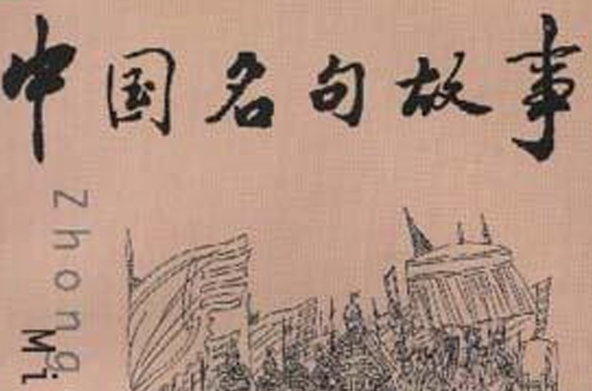 中国名句故事
Zhong
Mi